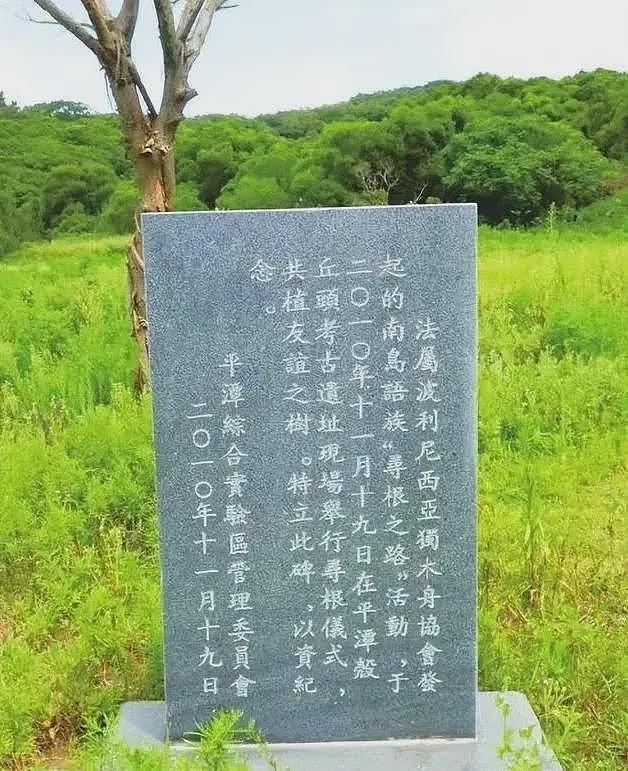 法屬波利尼西亞獨木身協會發
起的南島語族“尋根之路”活動，于
二〇一〇年十一月十九日在平潭殼
丘頭考古遺址現場舉行尋根儀式，
共植友誼之樹。特立此碑、以資紀
念。
平潭綜合實驗區管理委員會
二〇一〇年十一月十九日